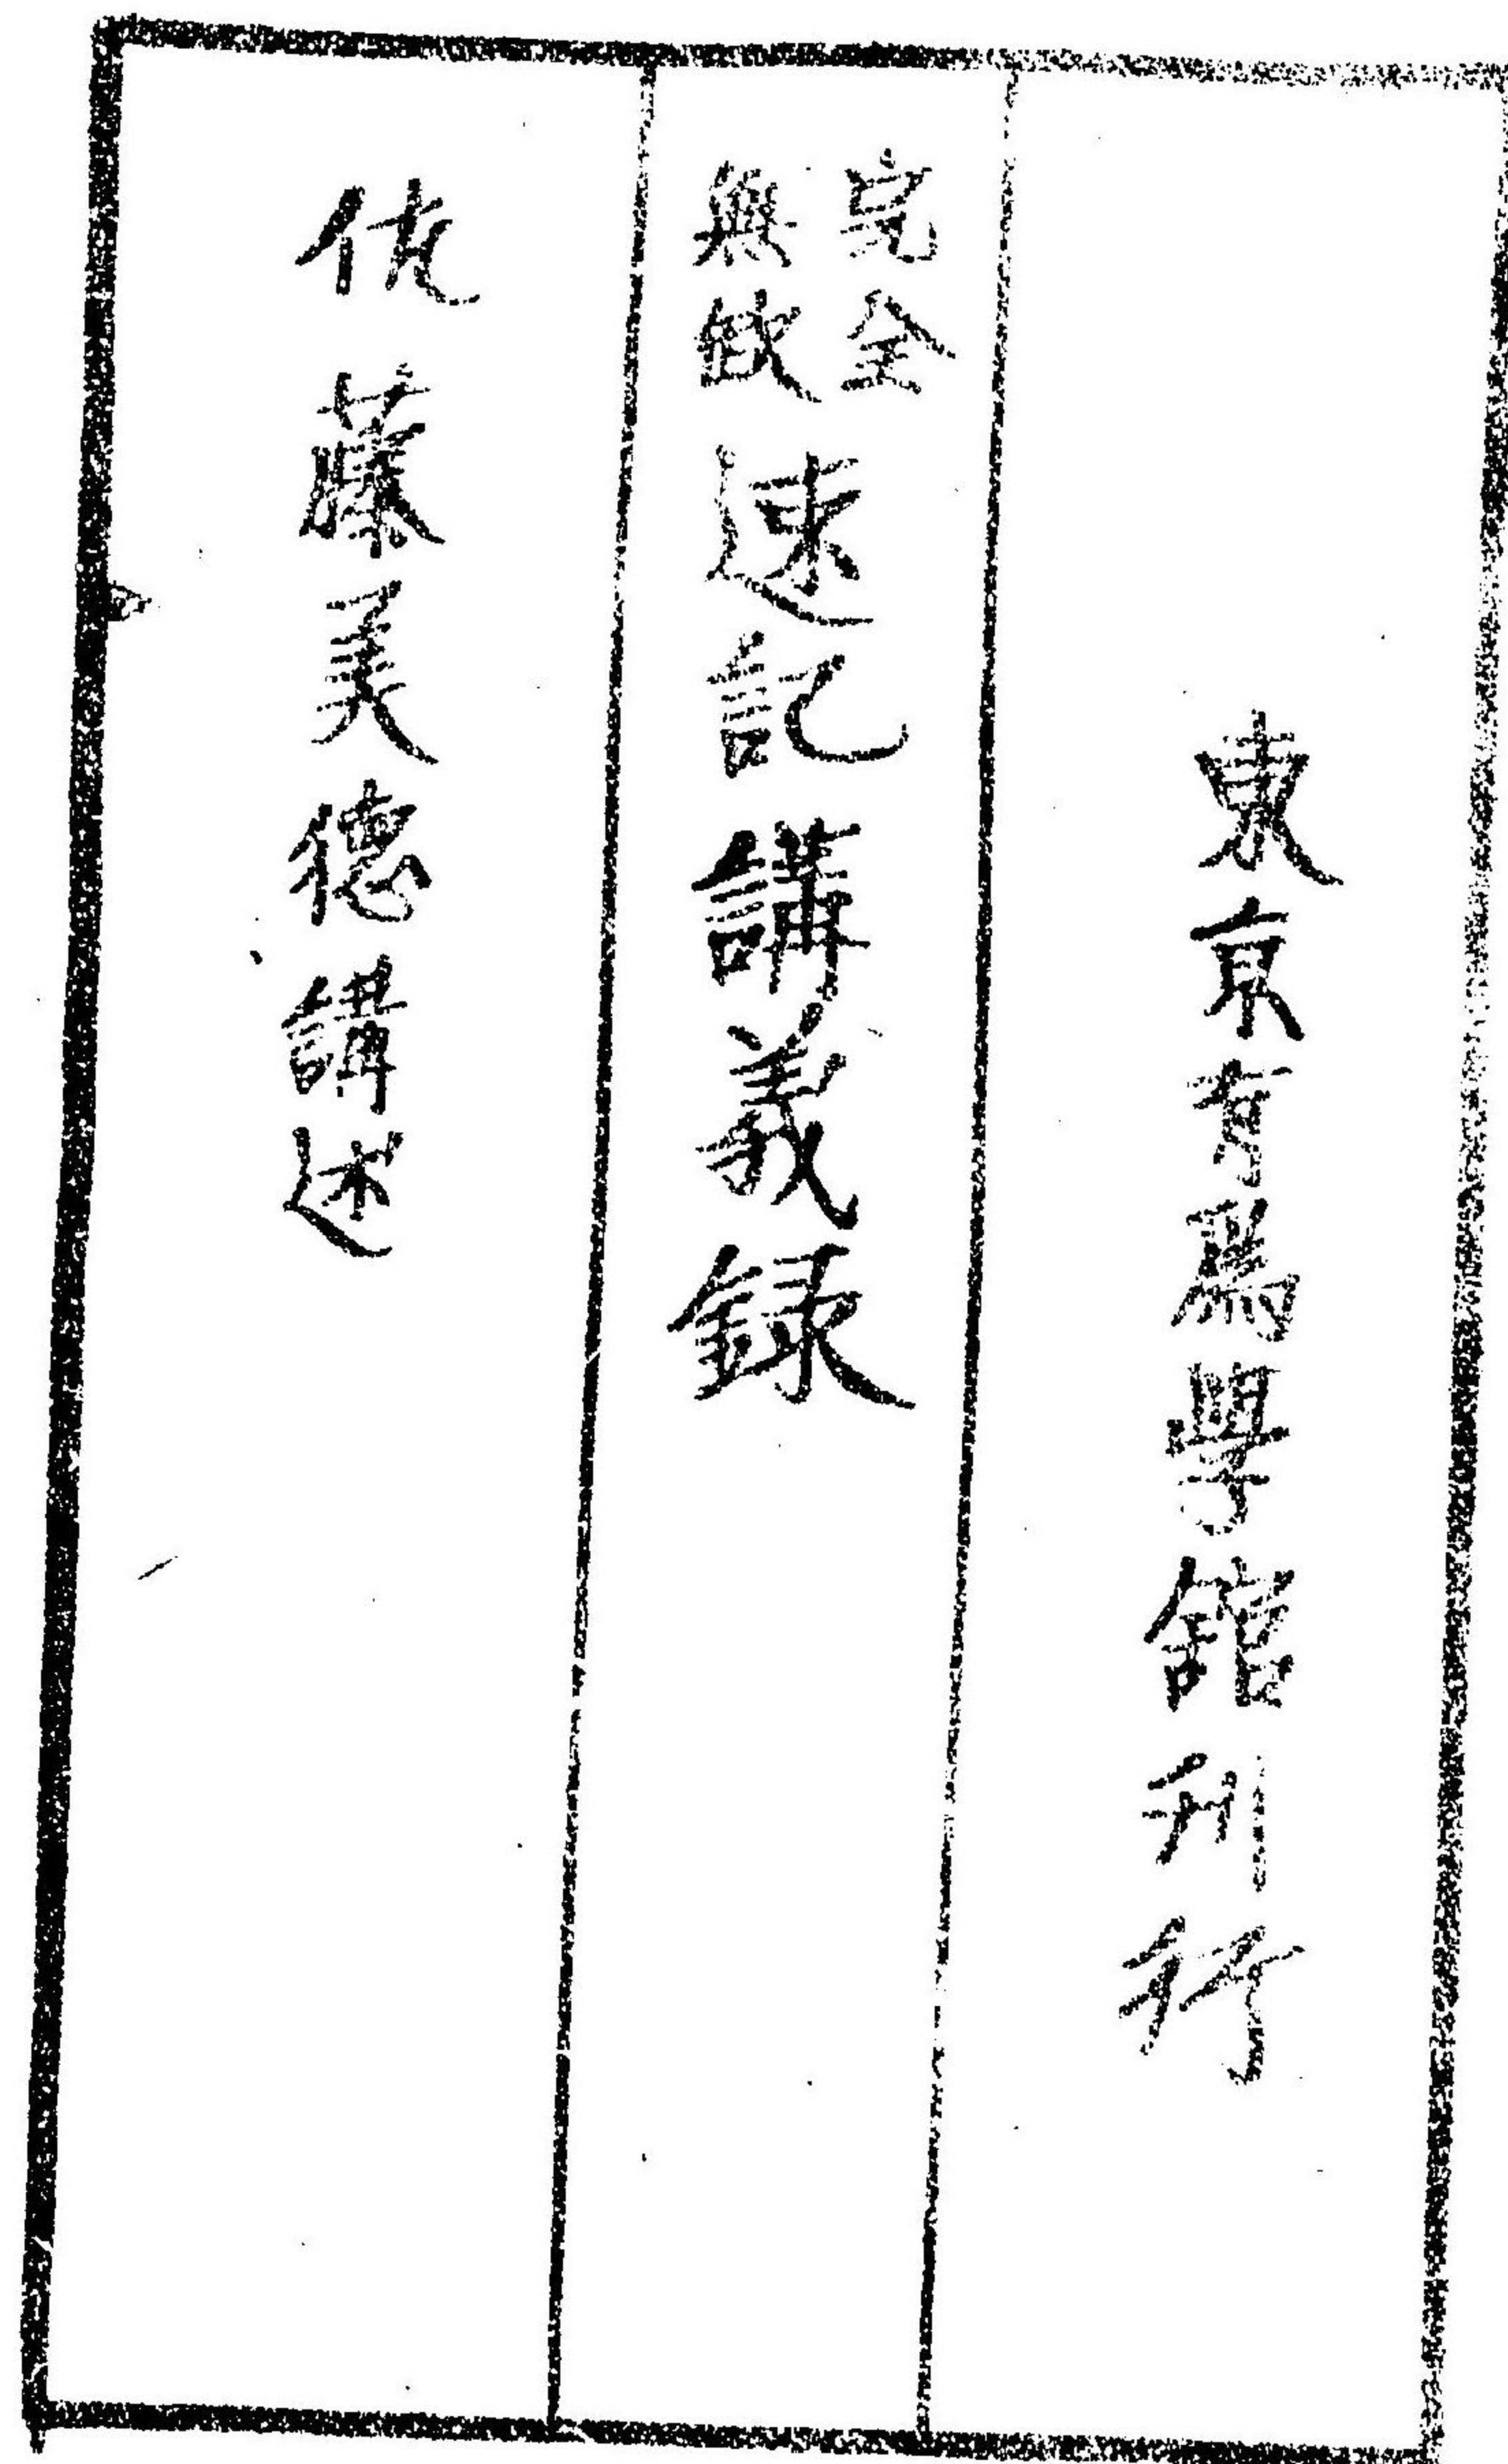 東京有爲學舘刊行
完全
無缺
速記講義録
佐藤美徳講述